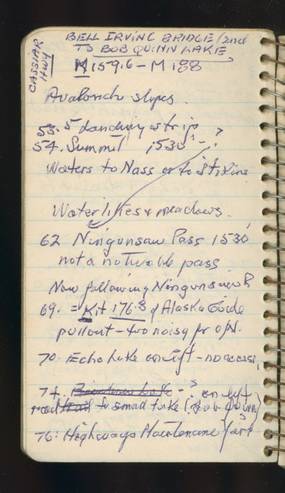 CASSIAR HWY
BELL IRVING BRIDGE (2nd
TO BOB QUINN LAKE)
M159.6 - M188
Avalanche slopes.
53.5 Landing strip ?
54. Summit 1530'
Waters to Nass or to Stikine
Waterlilies & meadows.
62 Ningunsaw Pass 1530'
not a notable pass
Now following Ningunsaw R
69. = Km 176.8 of Alaska Guide
pullout - too noisy for o/n.
70. Echo Lake on left - no access,
74. - on left
road to small lake (Bob Quinn)
76: Highways Maintenance Yard